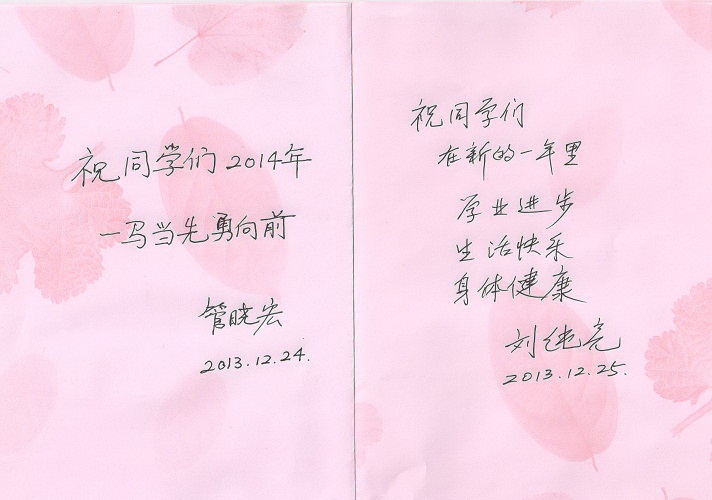 祝同学们2014年
一马当先勇向前
管晓宏
2013.12.24.
祝同学们
在新的一年里
学业进步
生活快乐
身体健康
刘继亮
2013.12.25.